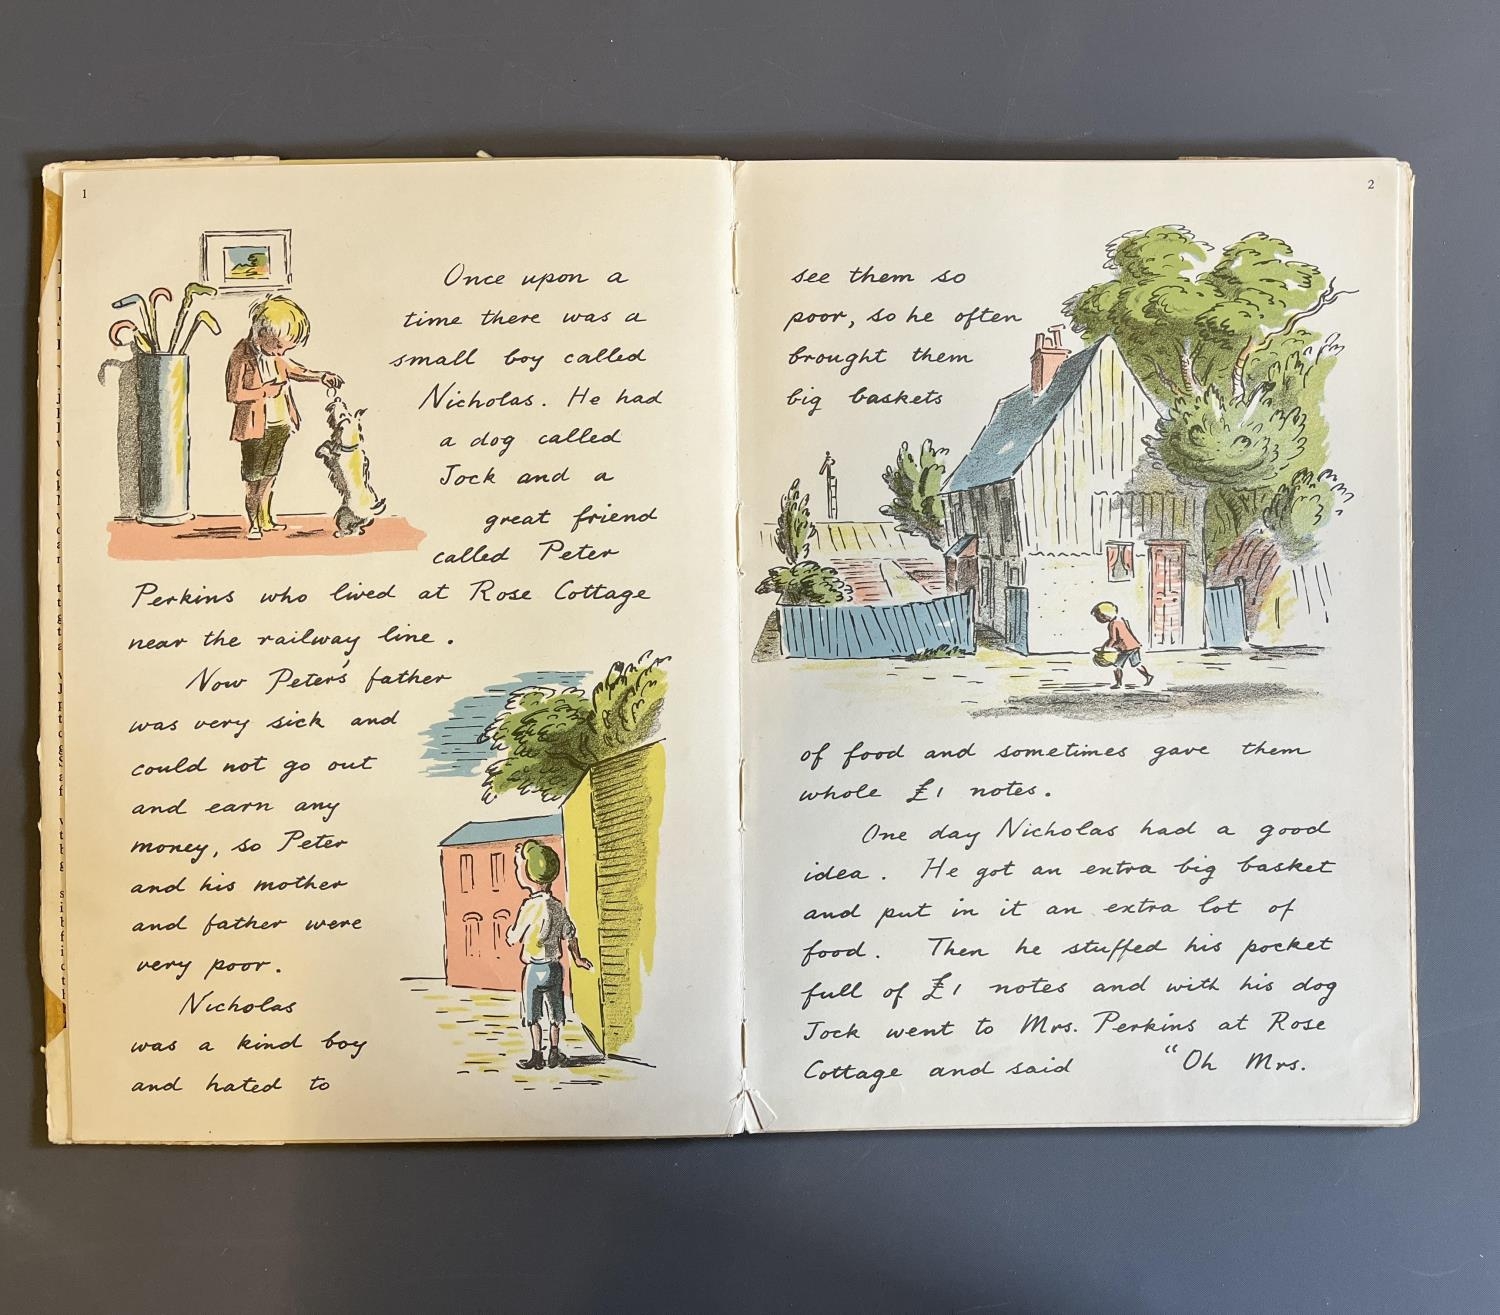 1
Once upon a
time there was a
small boy called
Nicholas. He had
a dog called
Jock and a
great friend
called Peter
Perkins who lived at Rose Cottage
near the railway line.
Now Peter's father
was very sick and
could not go out
and earn any
money, so Peter
and his mother
and father were
very poor.
Nicholas
was a kind boy
and hated to
2
see them so
poor, so he often
brought them
big baskets
of food and sometimes gave them
whole £1 notes.
One day Nicholas had a good
idea. He got an extra big basket
and put in it an extra lot of
food. Then he stuffed his pocket
full of £1 notes and with his dog
Jock went to Mrs. Perkins at Rose
Cottage and said "Oh Mrs.